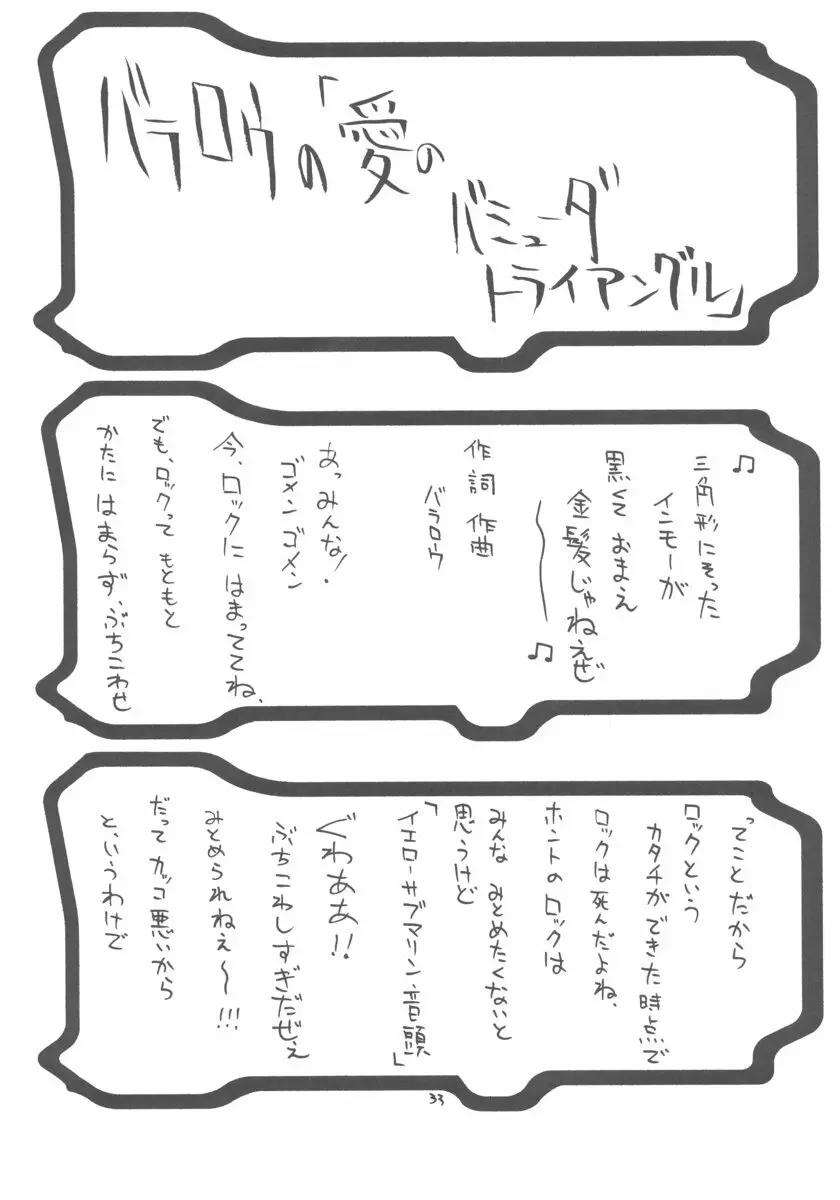 バラロウの「愛の
バミューダ
トライアングル」
♫三角形にそった
インモーが
黒くて おまえ
金髪じゃねえぜ〜♫
作詞 作曲
バラロウ
あっみんな!
ゴメンゴメン
今、ロックに はまっててね、
でも、ロックって もともと
かたに はまらず、ぶちこわせ
ってことだから
ロックという
カタチができた時点で
ロックは死んだよね、
ホントのロックは
みんな みとめたくないと
思うけど
「イエローサブマリン音頭」
ぐわああ!!
ぶちこわしすぎだぜぇ
みとめられねぇ〜!!!
だって カッコ悪いから
と、いうわけで
33